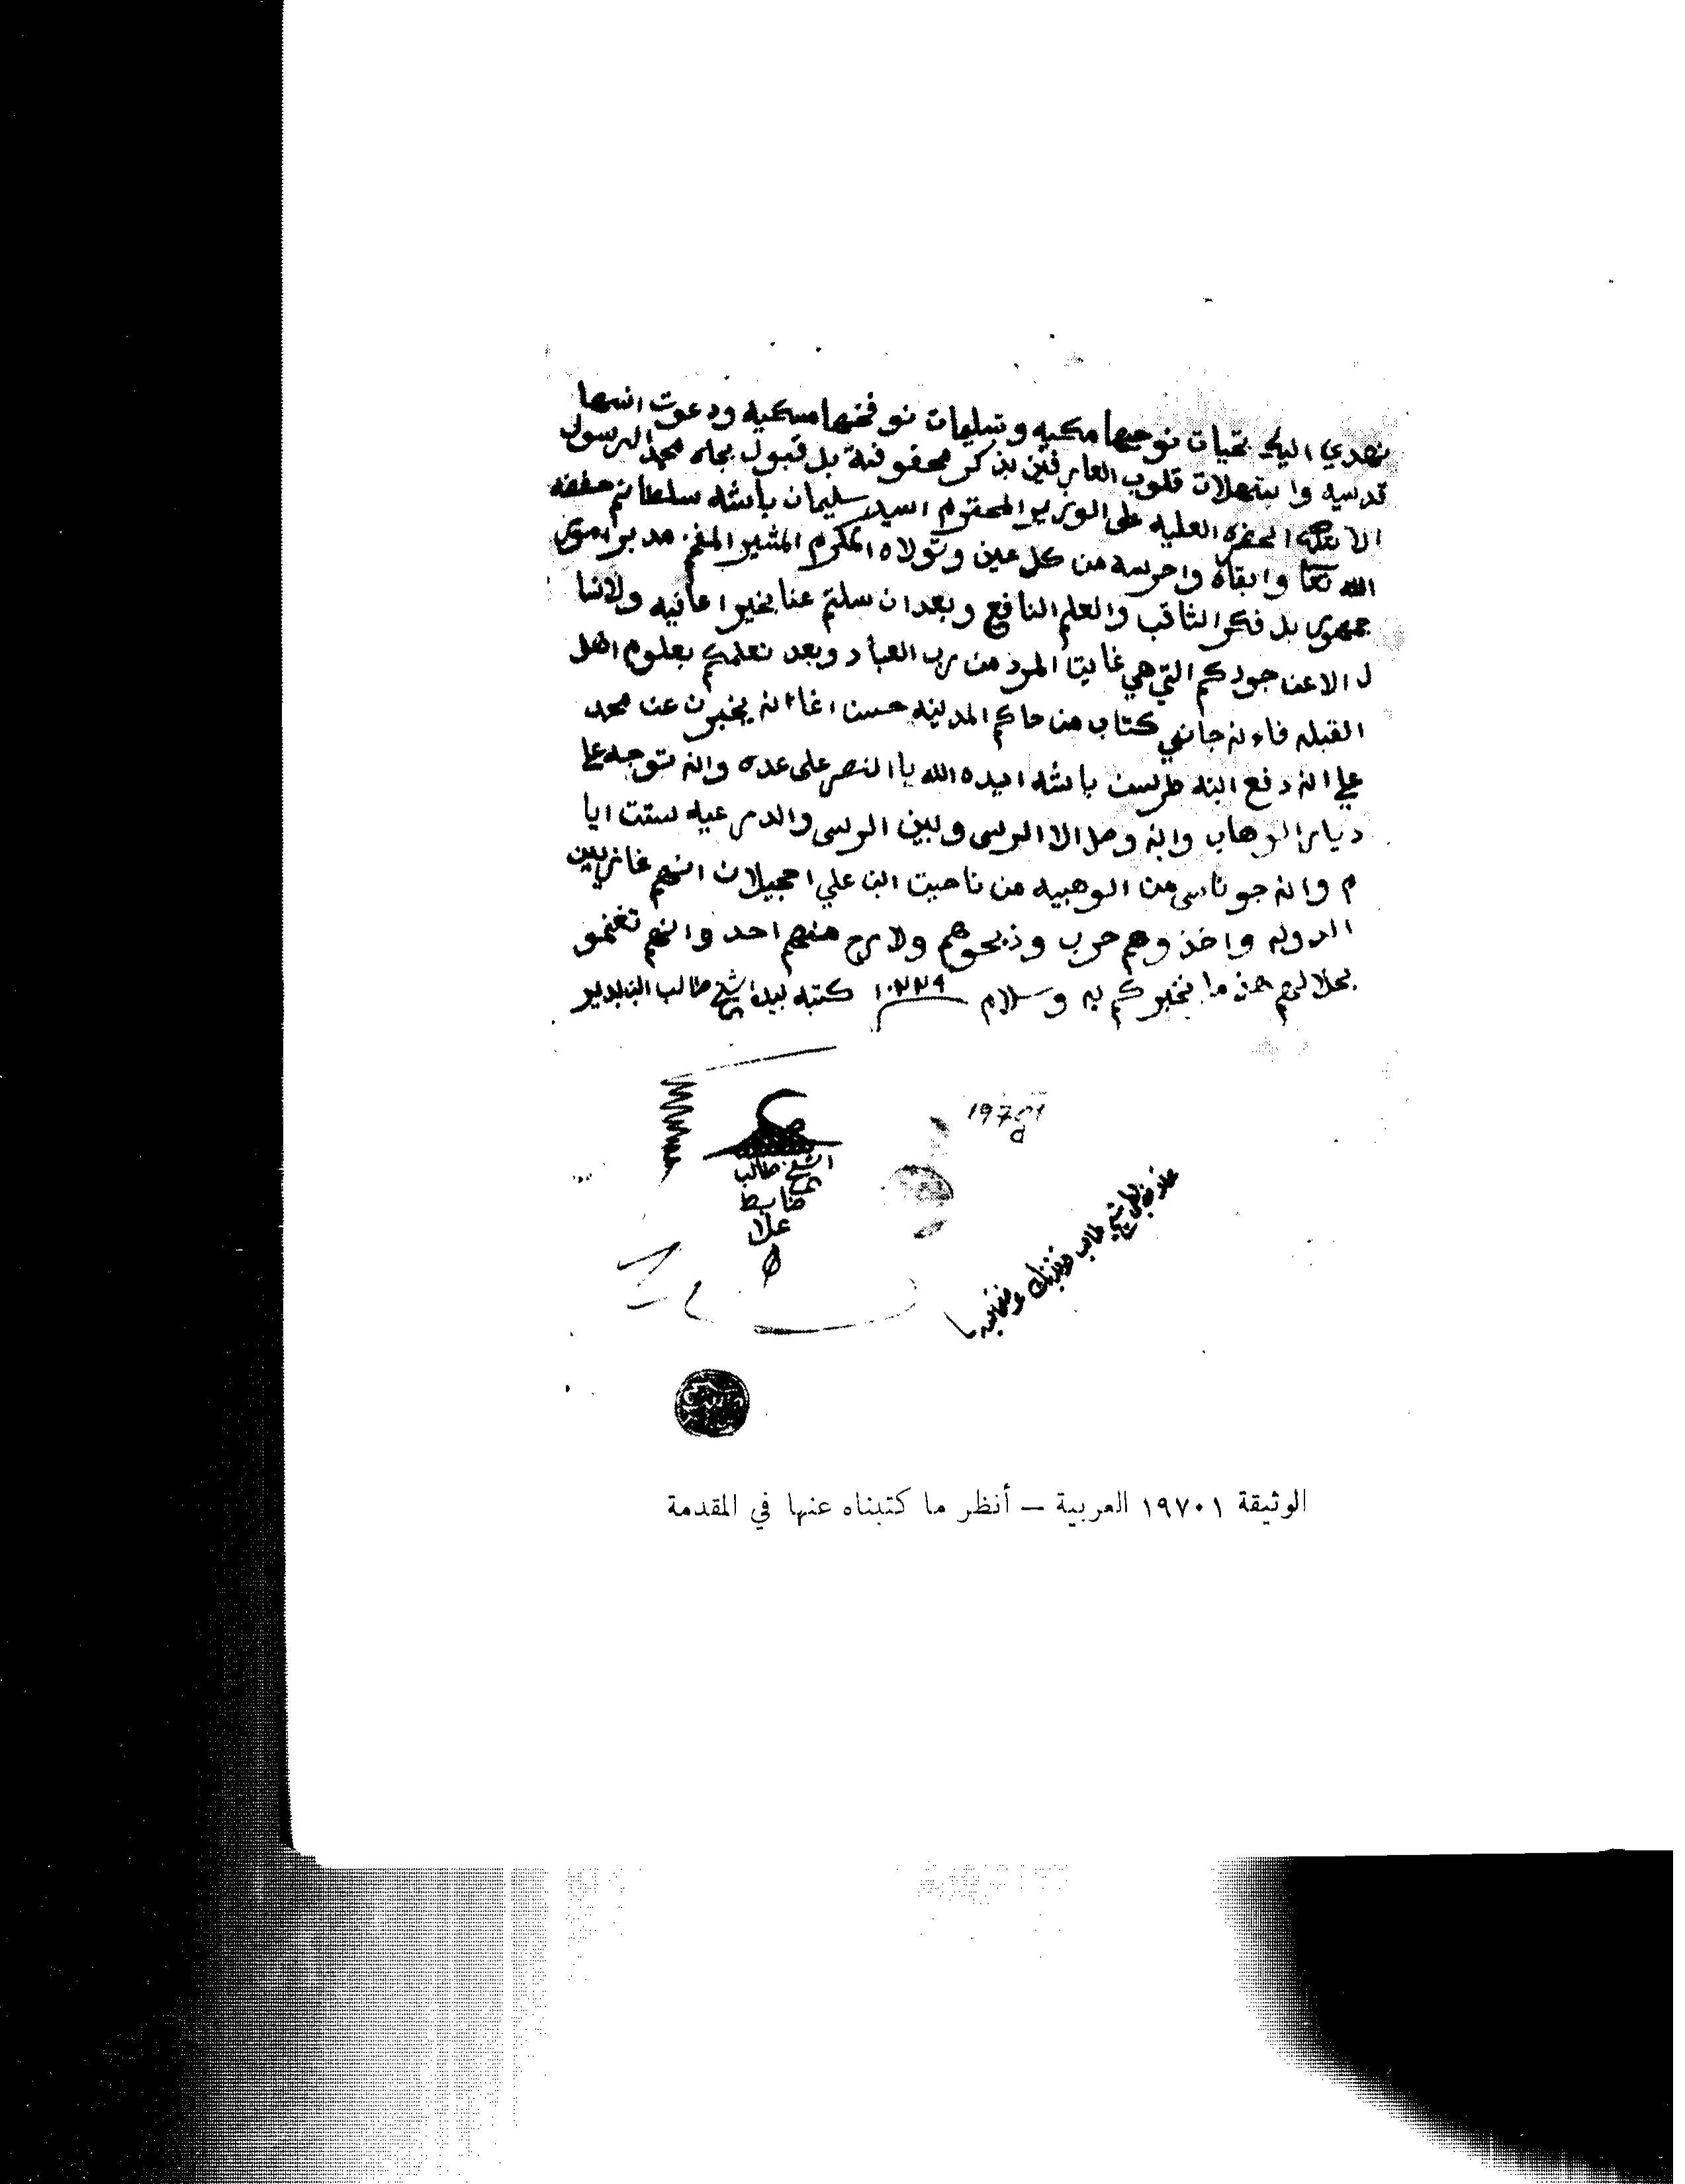 نهدي اليك تحيات نوحيها مكيه وتسليمات نوفخها مسكيه ودعوت انسها
قدسيه وابتهلات قلوب العارفين بذكر محفوفة بل قبول بجاه محمد الرسول
الا الحضره العليه على الوزير المحقوم السيد سليمان باشه سلطانم حفظه
الله تعا وابقاه واحرسه من كل عين وتولاه المكرم المشير المفخم مدبر امور
جمهور بل فكر الثاقب والعلم النافع وبعد ان سلتم عنا بخير اعافيه ولانسا
ل الا عن جودكم التي هي غايت المرد من رب العباد وبعد نعلمكم بعلوم اهل
القبله فاءنه جاني كتاب من حاكم المدينه حسن اغا انه يخبرن عن محمد
علي انه دفع ابنه طرسن باشه ايده الله با النصر على عده وانه توجه عا
ديار الوهاب وانه وصل الا الرس وبين الرس والدرعيه ستت ايا
م وانه جو ناس من الوهبيه من ناحيت ابن علي احجيلان انهم غازيين
الدوله واخذوهم حرب وذبحوهم ولا رح منهم احد وانهم تغنمو
بحلالهم هذ ما نخبركم به وسلام ١٢٢٩ كتبه بيده شيخ طالب البدير
19701
الشيخ طالب
ضابط
علا
الوثيقة ١٩٧٠١ العربية – أنظر ما كتبناه عنها في المقدمة